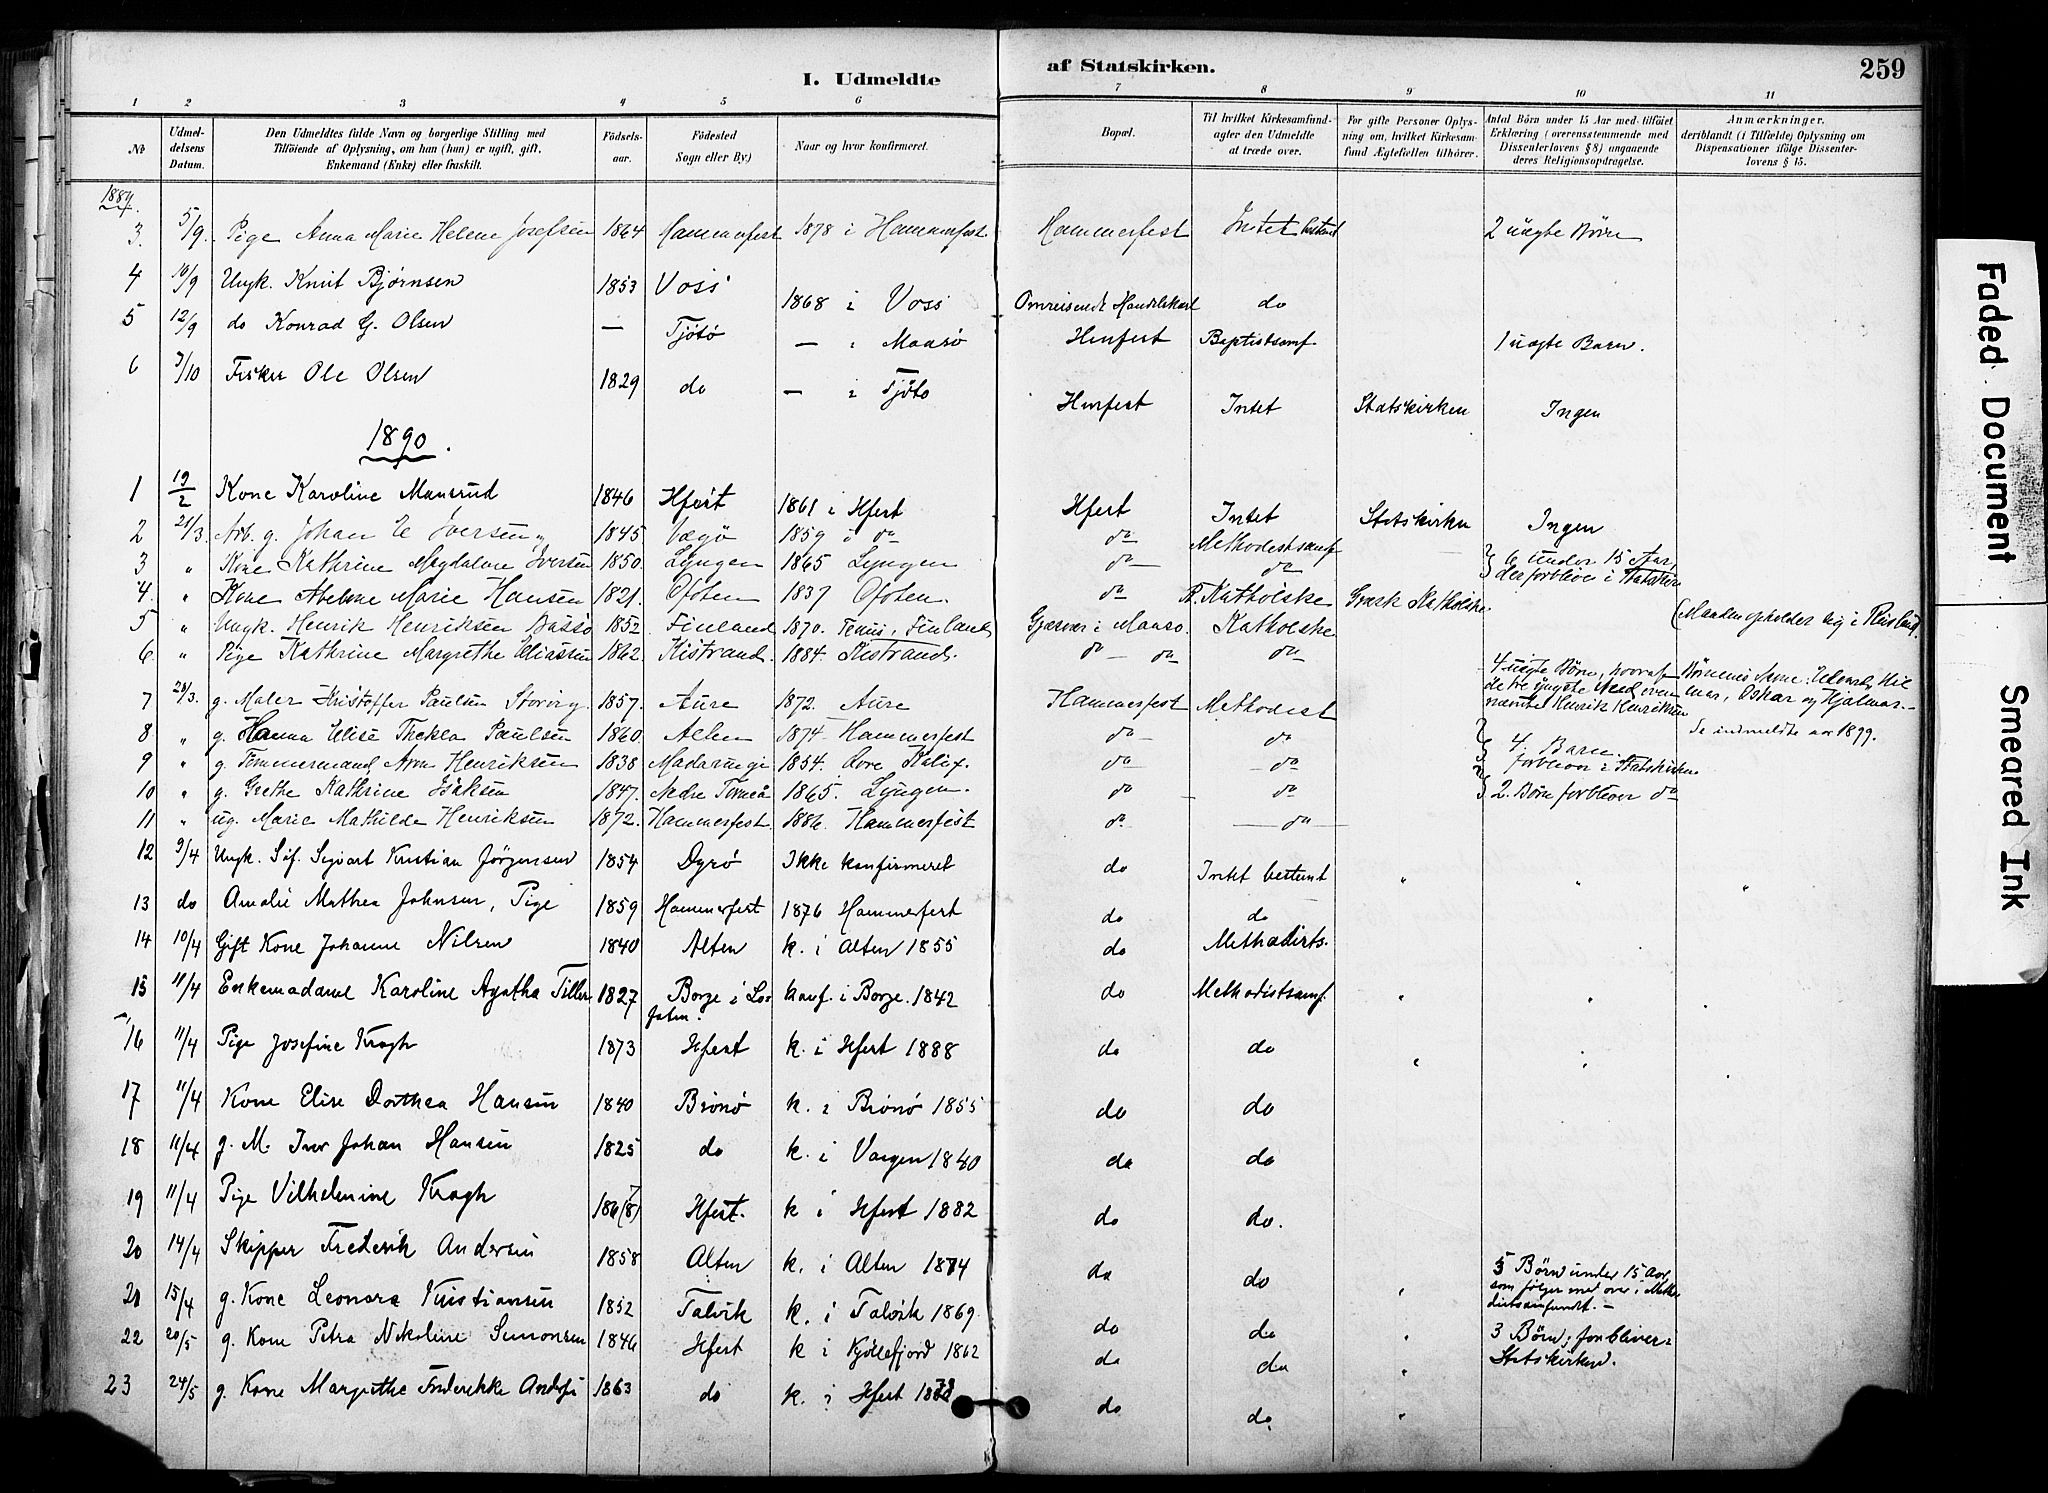 I. Udmeldte af Statskirken. 259
1 2 3 4 5 6 7 8 9 10 11
No | Udmeldelsens Datum. | Den Udmeldtes fulde Navn og borgerlige Stilling med Tilføiende af Oplysning, om han (hun) er ugift, gift, Enkemand (Enke) eller fraskilt. | Fødselsaar. | Fødested Sogn eller By) | Naar og hvor konfirmeret. | Bopæl. | Til hvilket Kirkesamfund agter den Udmeldte at træde over. | For gifte Personer Oplysning om, hvilket Kirkesamfund Ægtefællen tilhører. | Antal Börn under 15 Aar med tilföiet Erklæring (overensstemmende med Dissenterlovens § 8) angaaende deres Religionsopdragelse. | Anmærkninger, deriblandt (i Tilfælde) Oplysning om Dispensationer ifölge Dissenterlovens § 15.
1889.
3. 5/9. Pige Anna Marie Helene Josefsen 1864 Hammerfest 1878 i Hammerfest. Hammerfest Intet bestemt 2 uægte Børn
4 10/9 Ungk. Knut Bjørnsen 1853 Voss 1868 i Voss Omreisende Handelskarl do
5 12/9 do Konrad G. Olsen — Tjøtø — i Maasø Hmfest Baptistsamf 1 uægte Barn.
6 7/10 Fisker Ole Olsen 1829 do — i Tjøtø Hmfest Intet Statskirken Ingen
1890.
1 19/2 Kone Karoline Mansrud 1846 Hfest 1861 i Hfest Hfest Intet Statskirke Ingen
2 21/3. Arb. g. Johan E Iversen 1845 Vegø 1859 i do do Methodistsamf
3 " Kone Kathrine Magdalene Iversen 1850. Lyngen 1865 Lyngen do do 6 under 15 Aar, der forbliver i Statskirken
4. " Kone Abelone Marie Hansen 1821. Ofoten 1837 Ofoten. do R. Katholske Græsk Katholske. (Manden opholder sig i Rusland.
5 " Ungk. Henrik Henriksen Basso 1852. Finland 1870. Finland Gjæsvær i Maasø. Katholske
6 " Pige Kathrine Margrethe Eliassen 1862. Kistrand. 1884. Kistrand. do — do do 4 uægte Børn, hvoraf de tre yngste med oven nævnte Henrik Henriksen Børnenes Navne: Edvard, Hilmar, Oskar og Hjalmar. —
de indmeldte 1899.
7 28/3. g. Maler Kristoffer Paulsen 1857. Aure 1872. Aure Hammerfest Methodist
8. " g. Hanna Elise Thekla Paulsen 1860. Alten 1874 Hammerfest do do 4. Barn. forbliver i Statskirken
9 " g. Tømmermand Aron Henriksen 1838 1854. Øvre Kalix. do — do
10 " g. Grethe Kathrine Isaksen 1847. Nedre Torneå 1865. Lyngen. do do 2. Børn forbliver do
11 " ug. Marie Mathilde Henriksen 1872. Hammerfest. 1886. Hammerfest do — do
12 9/4 Ungk. Sif. Sigvart Kristian Jörgensen 1854 Dyrø Ikke konfirmeret do Intet bestemt " " "
13 do Amalie Mathea Johnsen, Pige 1859 Hammerfest 1876 Hammerfest do do
14 10/4 Gift Kone Johanne Nilsen 1840 Alten k. i Alten 1855 do Methodists.
15 11/4 Enkemadame Karoline Agatha Tiller 1827 Borge i Lofoten. konf. i Borge. 1842 do Methodistsamf. " "
16 11/4 Pige Josefine Krogh 1873 Hfest k. i Hfest 1888 do do "
17 11/4 Kone Elise Dorthea Hansen 1840 Brönö k. i Brönö 1855 do do
18 11/4 g. M. Iver Johan Hansen 1825 do k. i Vaagen 1840 do do
19 11/4 Pige Vilhelmine Krogh 1867(8) Hfest. k i Hfest 1882 do do.
20 14/4 Skipper Frederik Andersen 1858 Alten k. i Alten 1874 do do 5 Børn under 15 Aar, som følger med over i Methodistsamfundet. —
21 15/4 g. Kone Leonora Kristiansen 1852 Talvik k. i Talvik 1869. do do "
22 20/5 g. Kone Petra Nikoline Simonsen 1846 Hfest k i Kjöllefjord 1862 do do " 3 Børn; forbliver i Statskirken.
23 24/5 g. Kone Margrethe Frederikke 1863 do k. i Hfest do do "
Faded Document
Smeared Ink